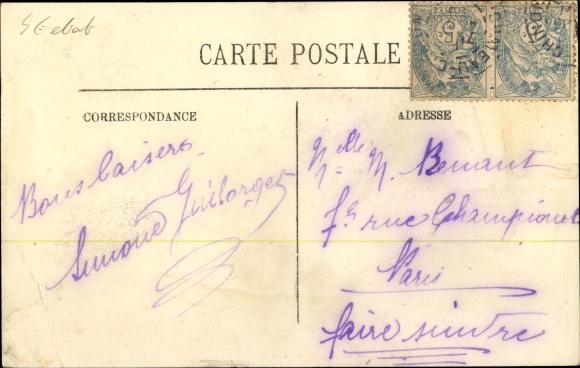 CARTE POSTALE
CORRESPONDANCE
ADRESSE
Bons baisers
Simone
Melle M. Benant
rue Championnet
Paris
faire suivre